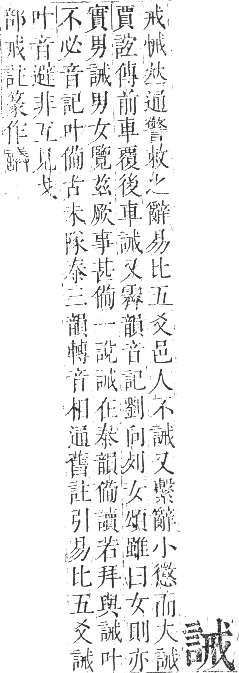 誡
戒悈𠀤通警敕之辭易比五爻邑人不誡又繫辭小懲而大誡
賈誼傳前車覆後車誡又霽韻音記劉向列女頌雖曰女則亦
實男誡男女覽茲厥事甚備一說誡在泰韻備讀若拜與誡叶
不必音記叶備古未隊泰三韻轉音相通舊註引易比五爻誡
叶音避非互見戈
部戒註篆作